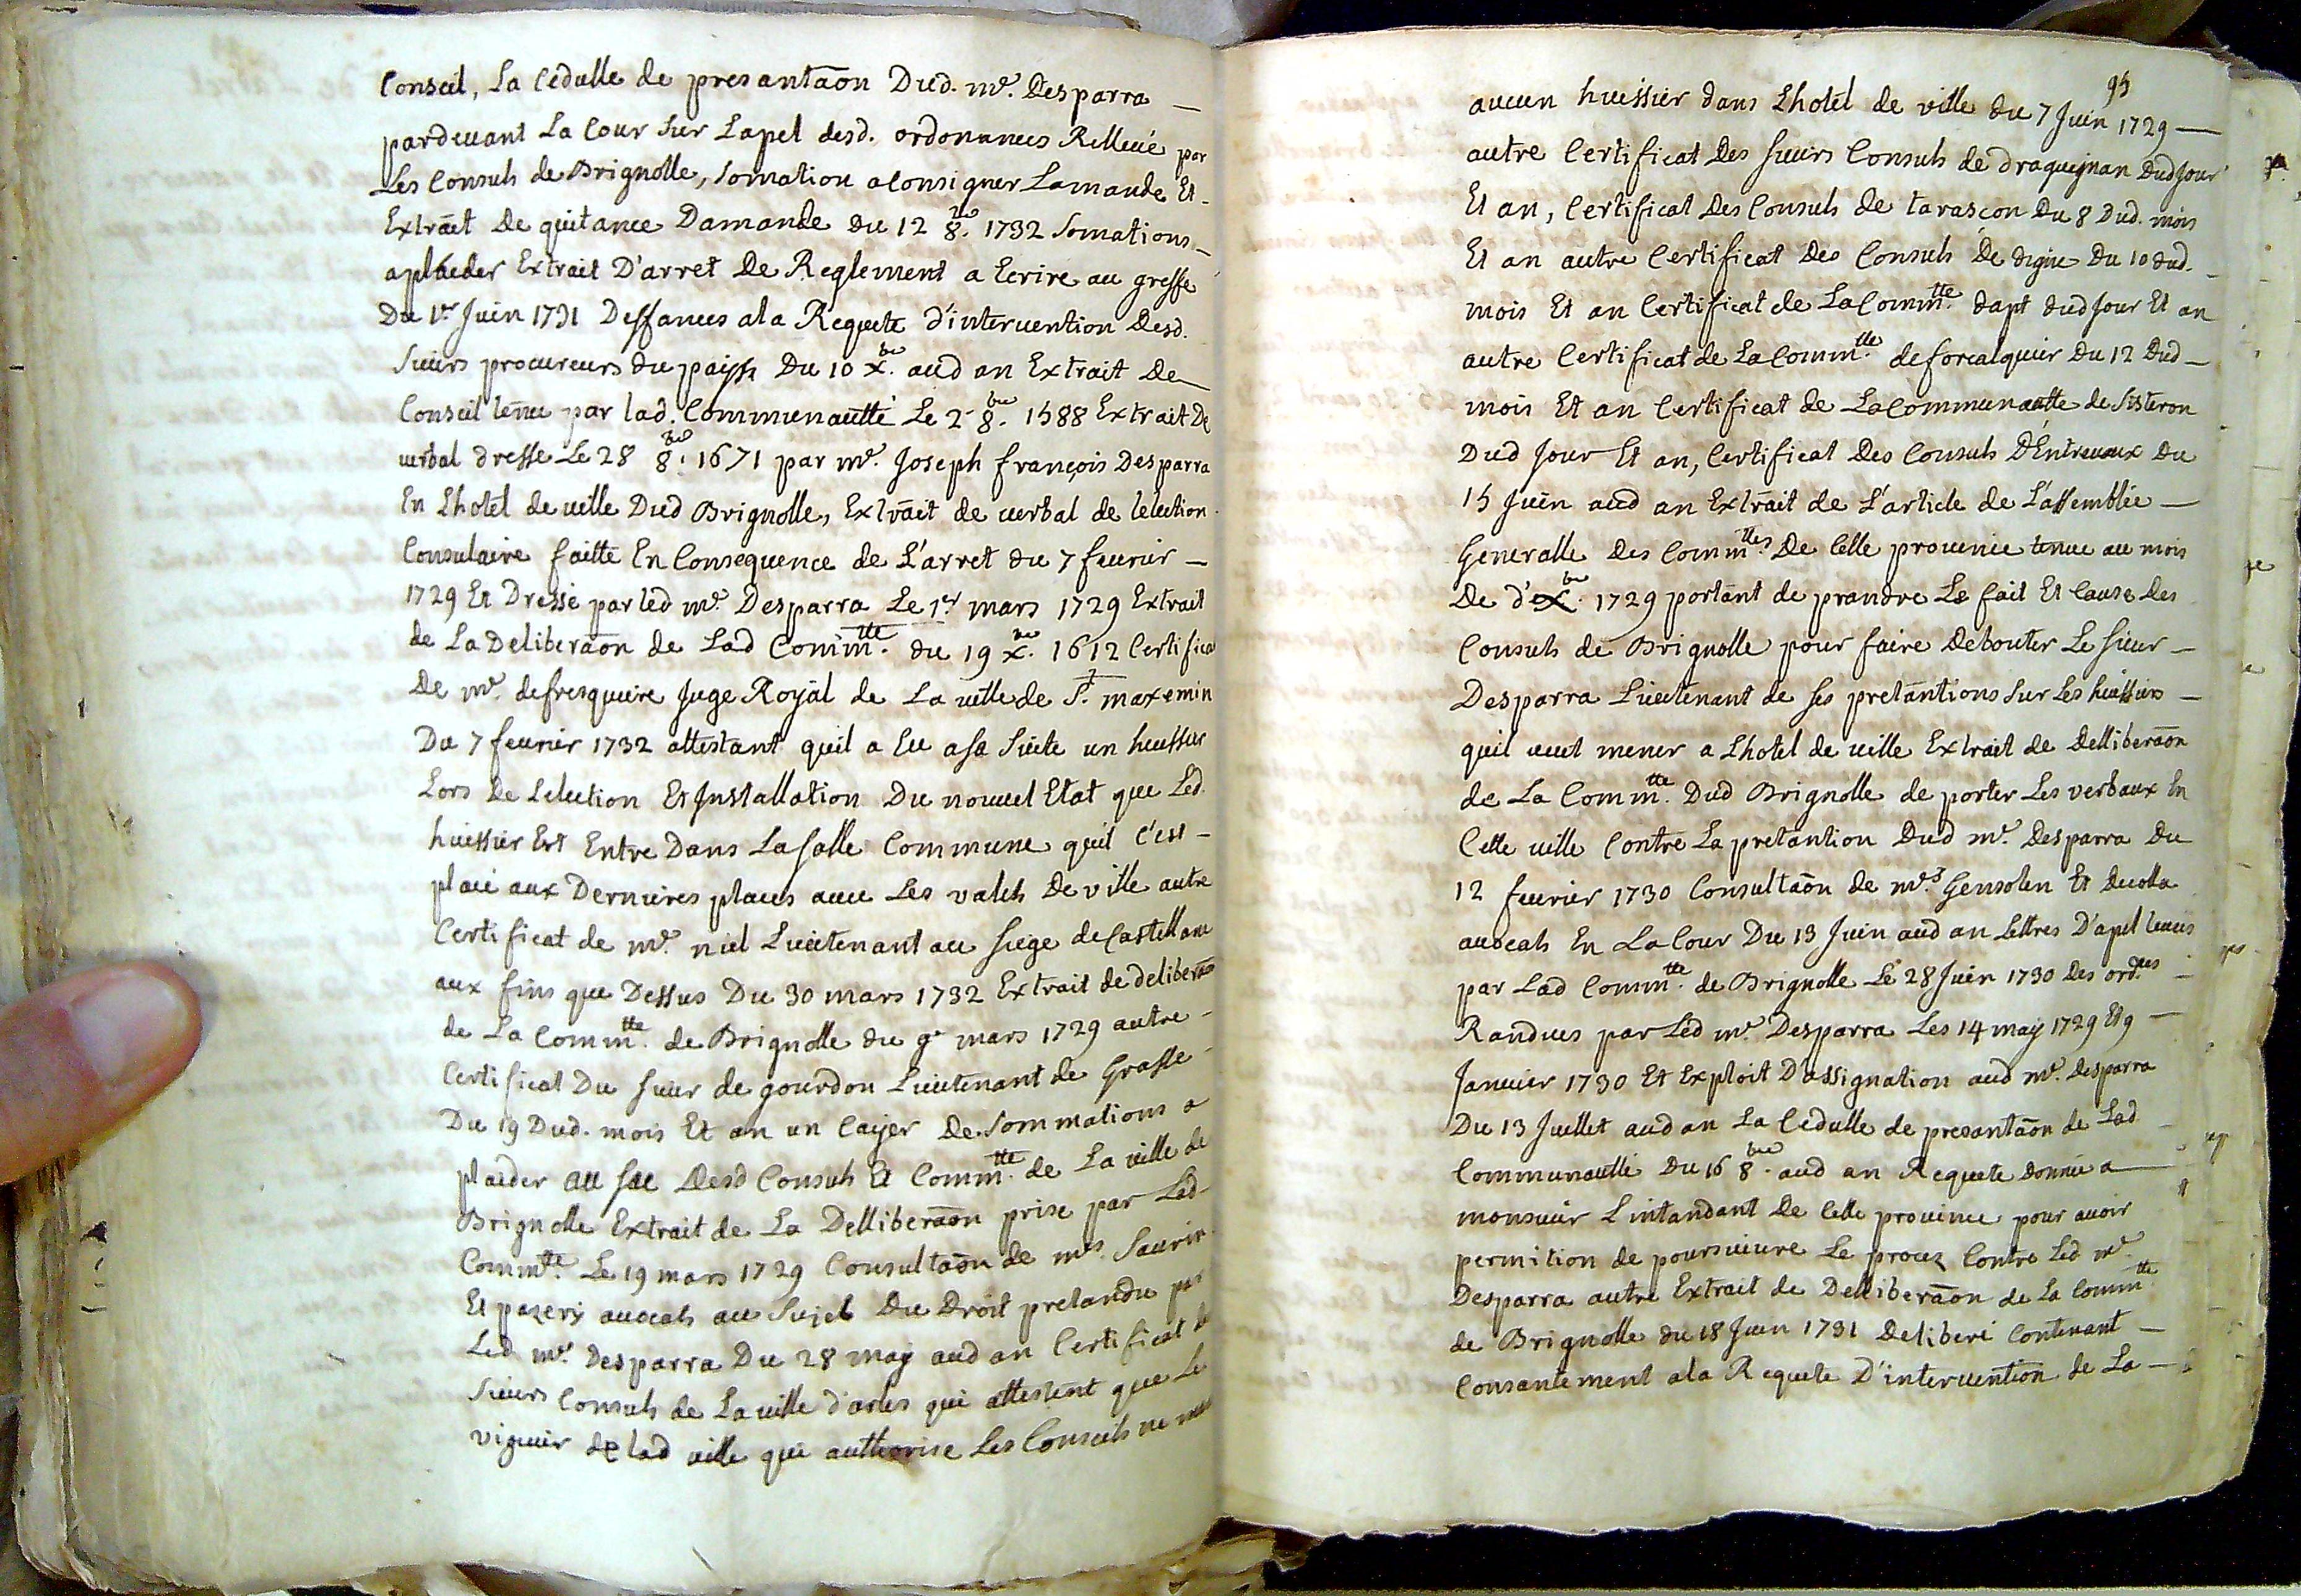 Conseil, La Cedulle de presantaõn Dud. mᵉ. Desparra —
pardevant La Cour sur Lapel desd. ordonances Rellevé par
Les Consuls de Brignolle, somation a Consigner Lamande Et -
Extrait De quitance Damande du 12 8.bre 1732 Somations -
a plaider Extrait D'arret De Reglement a Ecrire au greffe
Du 1er Juin 1731 Deffances ala Requete d'intervention Desd.
Sieurs procureurs du païs Du 10 x.bre aud an Extrait De
Conseil tenu par lad. Communautté Le 2 8.bre 1588 Extrait De
verbal dresse Le 28 8.bre 1671 par mᵉ. Joseph françois Desparra
En Lhotel de ville Dud Brignolle, Extrait de verbal de lelection
Consulaire faitte En Consequence de L'arret du 7 fevrier —
1729 Et Dressé par led mᵉ. Desparra Le 1er mars 1729 Extrait
de La Deliberaõn de Lad Commtte. du 19 x.bre 1612 Certifica
De mᵉ. defresquiere Juge Royal de La ville de St. maxemin
Du 7 fevrier 1732 attestant quil a Eu asa Suite un huissier
Lors De Lelection Et Installation Du nouvel Etat que Led.
huissier Est Entre Dans La salle Commune quil c'est -
placé aux Dernieres places avec Les valets De ville autre
Certificat de mᵉ. niel Lieutenant au siege de Castellane
aux fins que Dessus Du 30 mars 1732 Extrait de deliberaõn
de La Commtte. de Brignolle du 9e mars 1729 autre -
Certificat Du sieur de gourdon Lieutenant de Grasse -
Du 19 Dud. mois Et an un Cayer De Sommations a
plaider au sac Desd Consuls Et Commtte. de La ville de
Brignolle Extrait de La Delliberaõn prise par Led -
Commtte. Le 19 mars 1729 Consultaõn de mes. Saurin
Et pazery avocats au Sujet Du Droit pretandu par
Led mᵉ. Desparra Du 28 may aud an Certificat de
Sieurs Consuls de La ville d'arles qui attestent que Le
viguier de lad ville qui authorise Les Conseils ne
95
aucun huissier dans Lhotel de ville du 7 Juin 1729 —
autre Certificat Des sieurs Consuls de draguignan Dud jour
Et an, Certificat Des Consuls de tarascon Du 8 Dud. mois
Et an autre Certificat Des Consuls De digne Du 10 dud. -
mois Et an Certificat de La Commtte. dapt dud jour Et an
autre Certificat de La Commtte. de forcalquier Du 12 Dud -
mois Et an Certificat de La Communautte de Sisteron
Dud Jour Et an, Certificat Des Consuls D'Entrevaux Du
15 Juin aud an Extrait de L'article de L'assemblée —
Generalle Des Commttes. De Cette province tenue au mois
De d'ex.bre 1729 portant de prandre Le fait Et Cause Des
Consuls de Brignolle pour faire Debouter Le sieur -
Desparra Lieutenant de ses pretantions sur Les huissiers -
quil veut mener a Lhotel de ville Extrait de Delliberaõn
de La Commtte. Dud Brignolle de porter Les verbaux En
Cette ville Contre La pretantion Dud mᵉ. Desparra Du
12 fevrier 1730 Consultaõn de mes. Gensolen Et Decolla
avocats En La Cour Du 13 Juin aud an Lettres D'apel levées
par Lad Commtte. de Brignolle Le 28 Juin 1730 Des ord.ces -
Randues par Led mᵉ. Desparra Les 14 may 1729 Et 9 —
Janvier 1730 Et Exploit D'assignation aud mᵉ. Desparra
Du 13 Juillet aud an La Cedulle de presantaõn de Lad
Communautté Du 16 8.bre aud an Requete Donnée a —
monsieur Lintandant De Cette province pour avoir
permition de poursuivre Le procez Contre Led mᵉ
Desparra autre Extrait de Delliberaõn de La Commtte
de Brignolle du 18 Juin 1731 Deliberé Contenant —
Consantement ala Requete D'intervention de La —